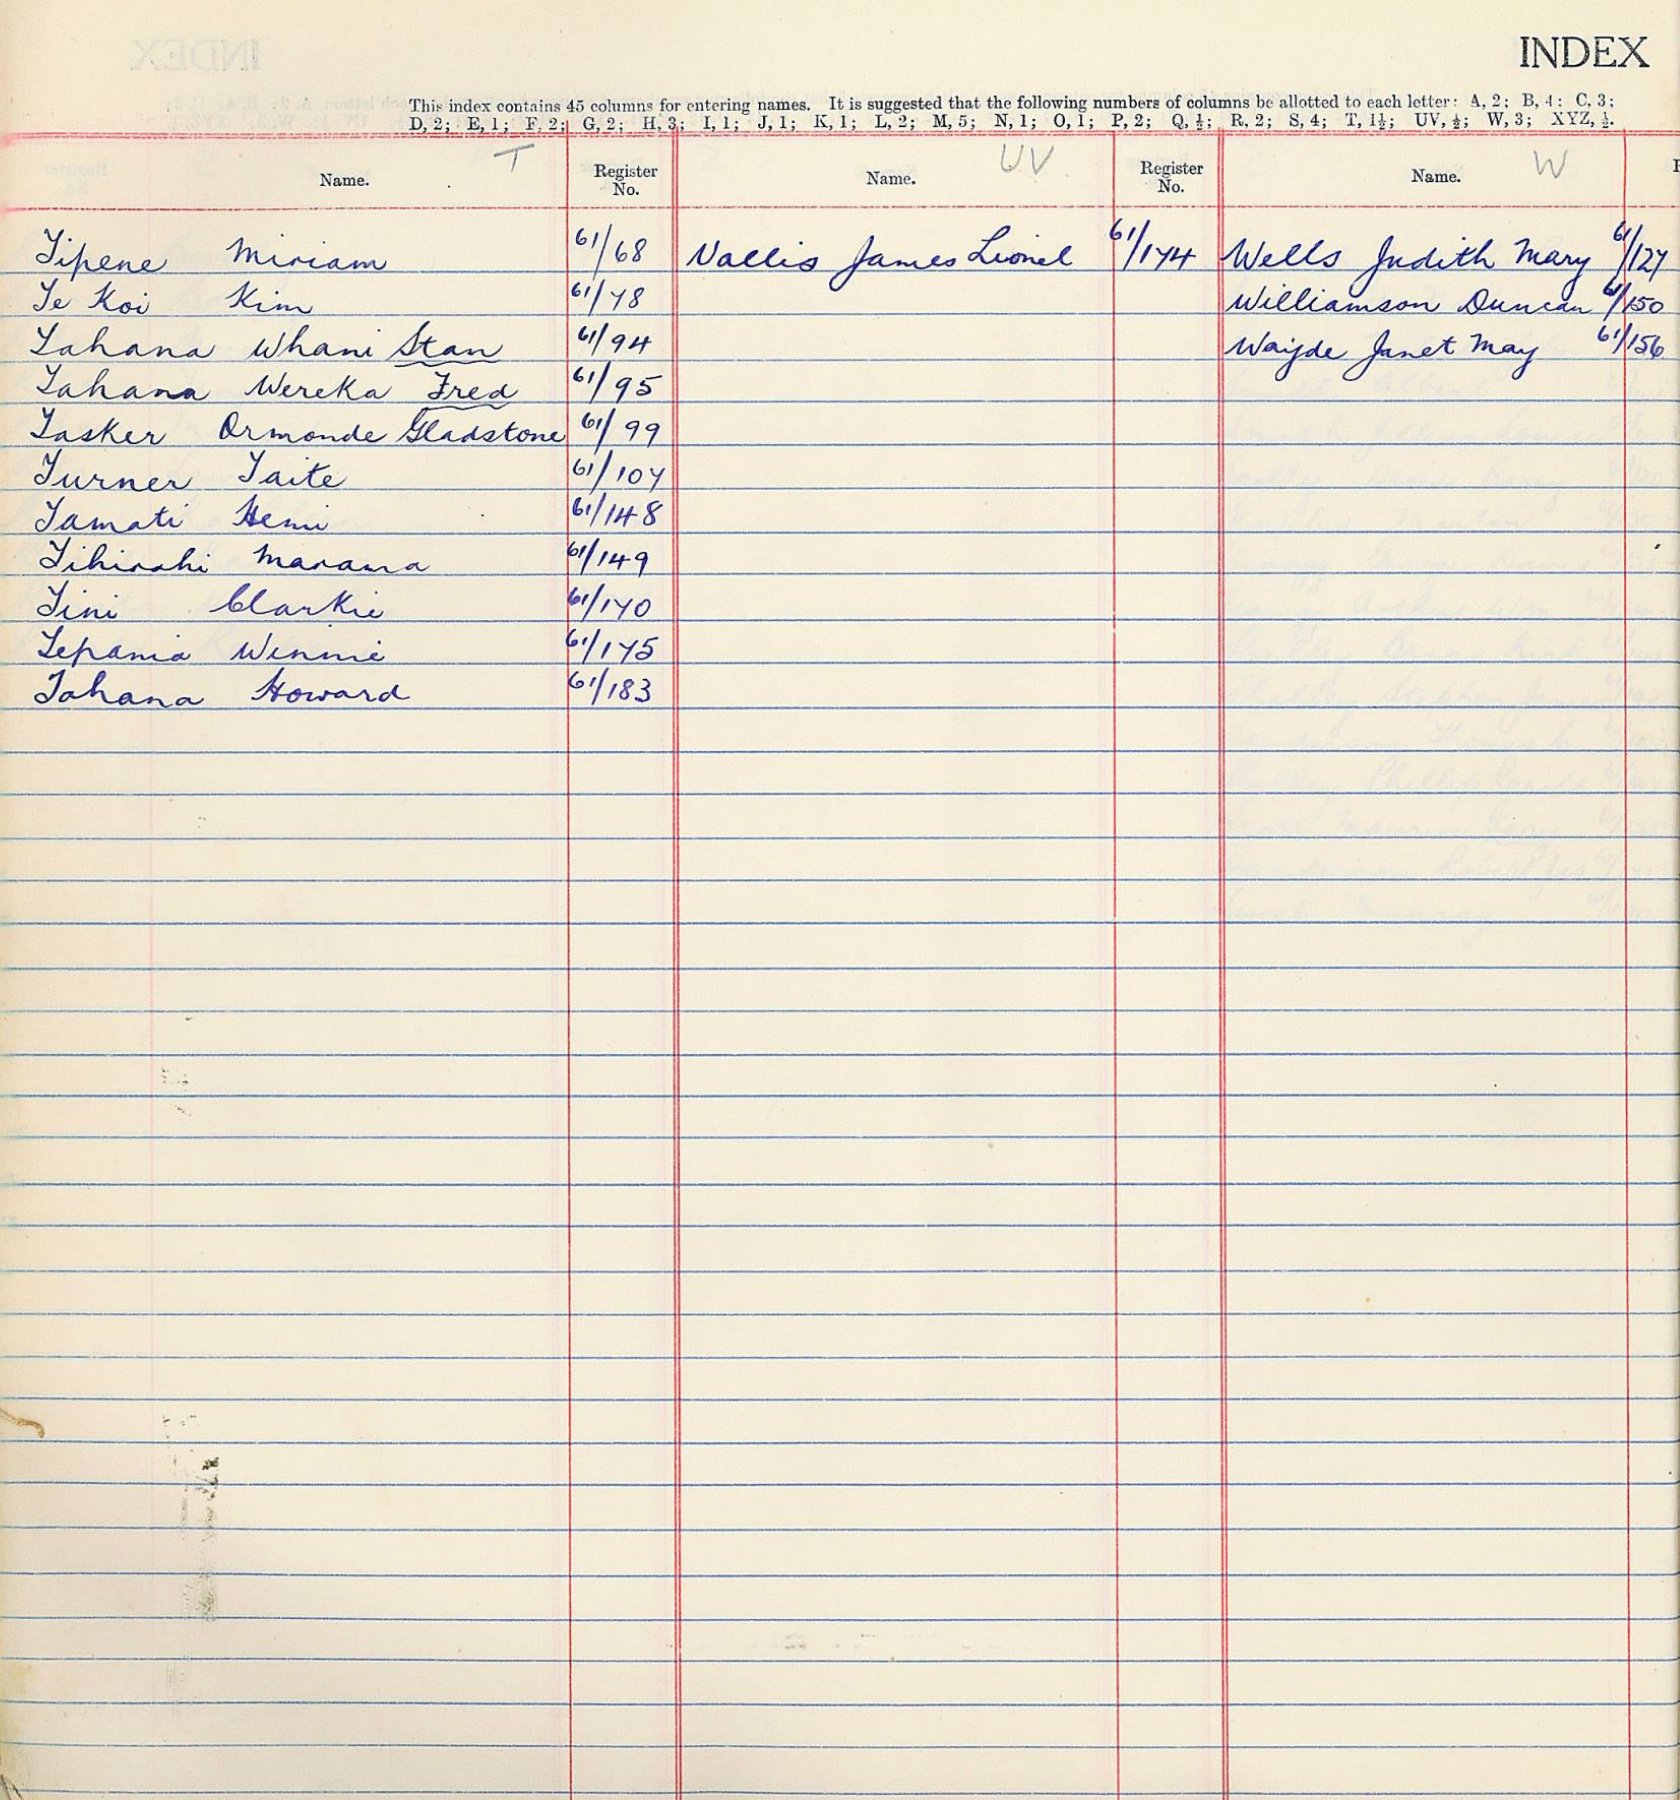 INDEX
This index contains 45 columns for entering names. It is suggested that the following numbers of columns be allotted to each letter: A, 2; B, 4: C, 3;
D, 2; E, 1; F, 2; G, 2; H, 3; I, 1; J, 1; K, 1; L, 2; M, 5; N, 1; O, 1; P, 2; Q, ½; R, 2; S, 4; T, 1½; UV, ½; W, 3; XYZ, ½.
T UV W
Name. Register No. Name. Register No. Name.
Tipene Miriam 61/68 Vallis James Lionel 61/174 Wells Judith Mary 61/127
Te Koi Kim 61/78 Williamson Duncan 61/150
Tahana Whani Stan 61/94 Wayde Janet May 61/156
Tahana Wereka Fred 61/95
Tasker Ormonde Gladstone 61/99
Turner Taite 61/107
Tamati Hemi 61/148
Tihirahi Marama 61/149
Tini Clarkie 61/170
Tepania Winnie 61/175
Tahana Howard 61/183